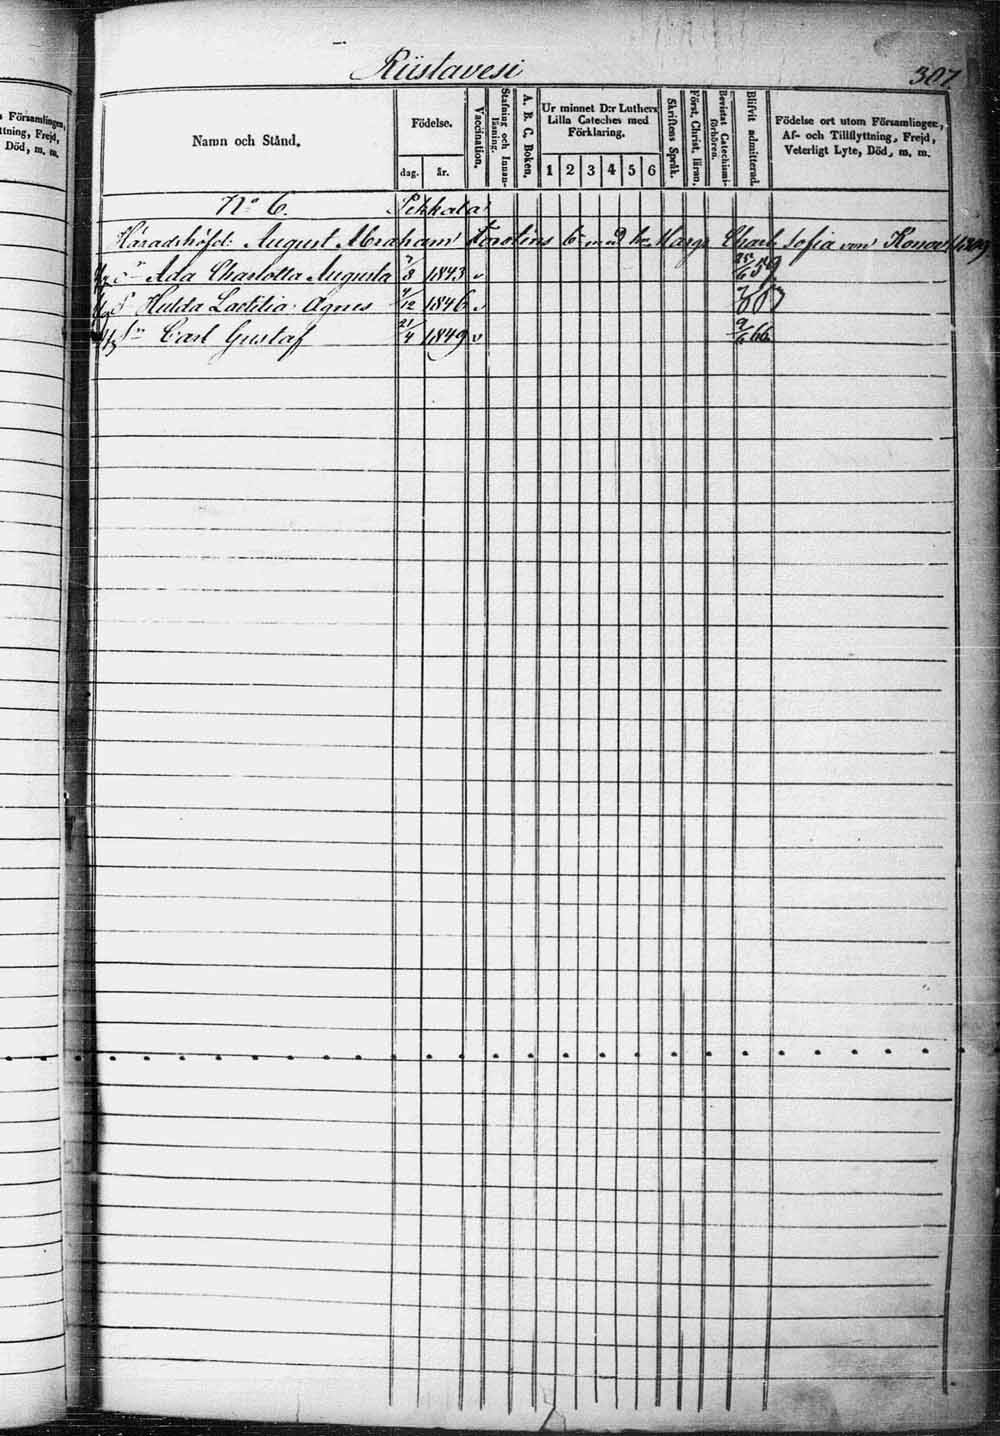 Riistavesi
307
Församlingen,
ttning, Frejd,
Död, m. m.
Namn och Stånd.
Födelse.
dag.
år.
Vaccination.
Stafning och Innan-
läsning.
A. B. C. Boken.
Ur minnet D:r Luthers
Lilla Cateches med
Förklaring.
1 2 3 4 5 6
Skriftens Språk.
Först. Christ. läran.
Bevistat Catechismi-
förhören.
Blifvit admitterad.
Födelse ort utom Församlingen,
Af- och Tillflyttning, Frejd,
Veterligt Lyte, Död, m. m.
No 6. Pekkala
Häradshöfd: August Abraham Forstèns b–n med Marg: Charl. Sofia von
Dr Ada Charlotta Augusta 7/8 1843 v 59
Dr Hulda Laetitia Agnes 9/12 1846 v
Sn Carl Gustaf 21/4 1849 v 9/6 66